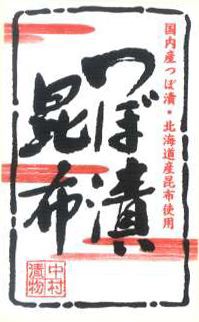 国内産つぼ漬・北海道産昆布使用
つぼ漬
昆布
中村
漬物